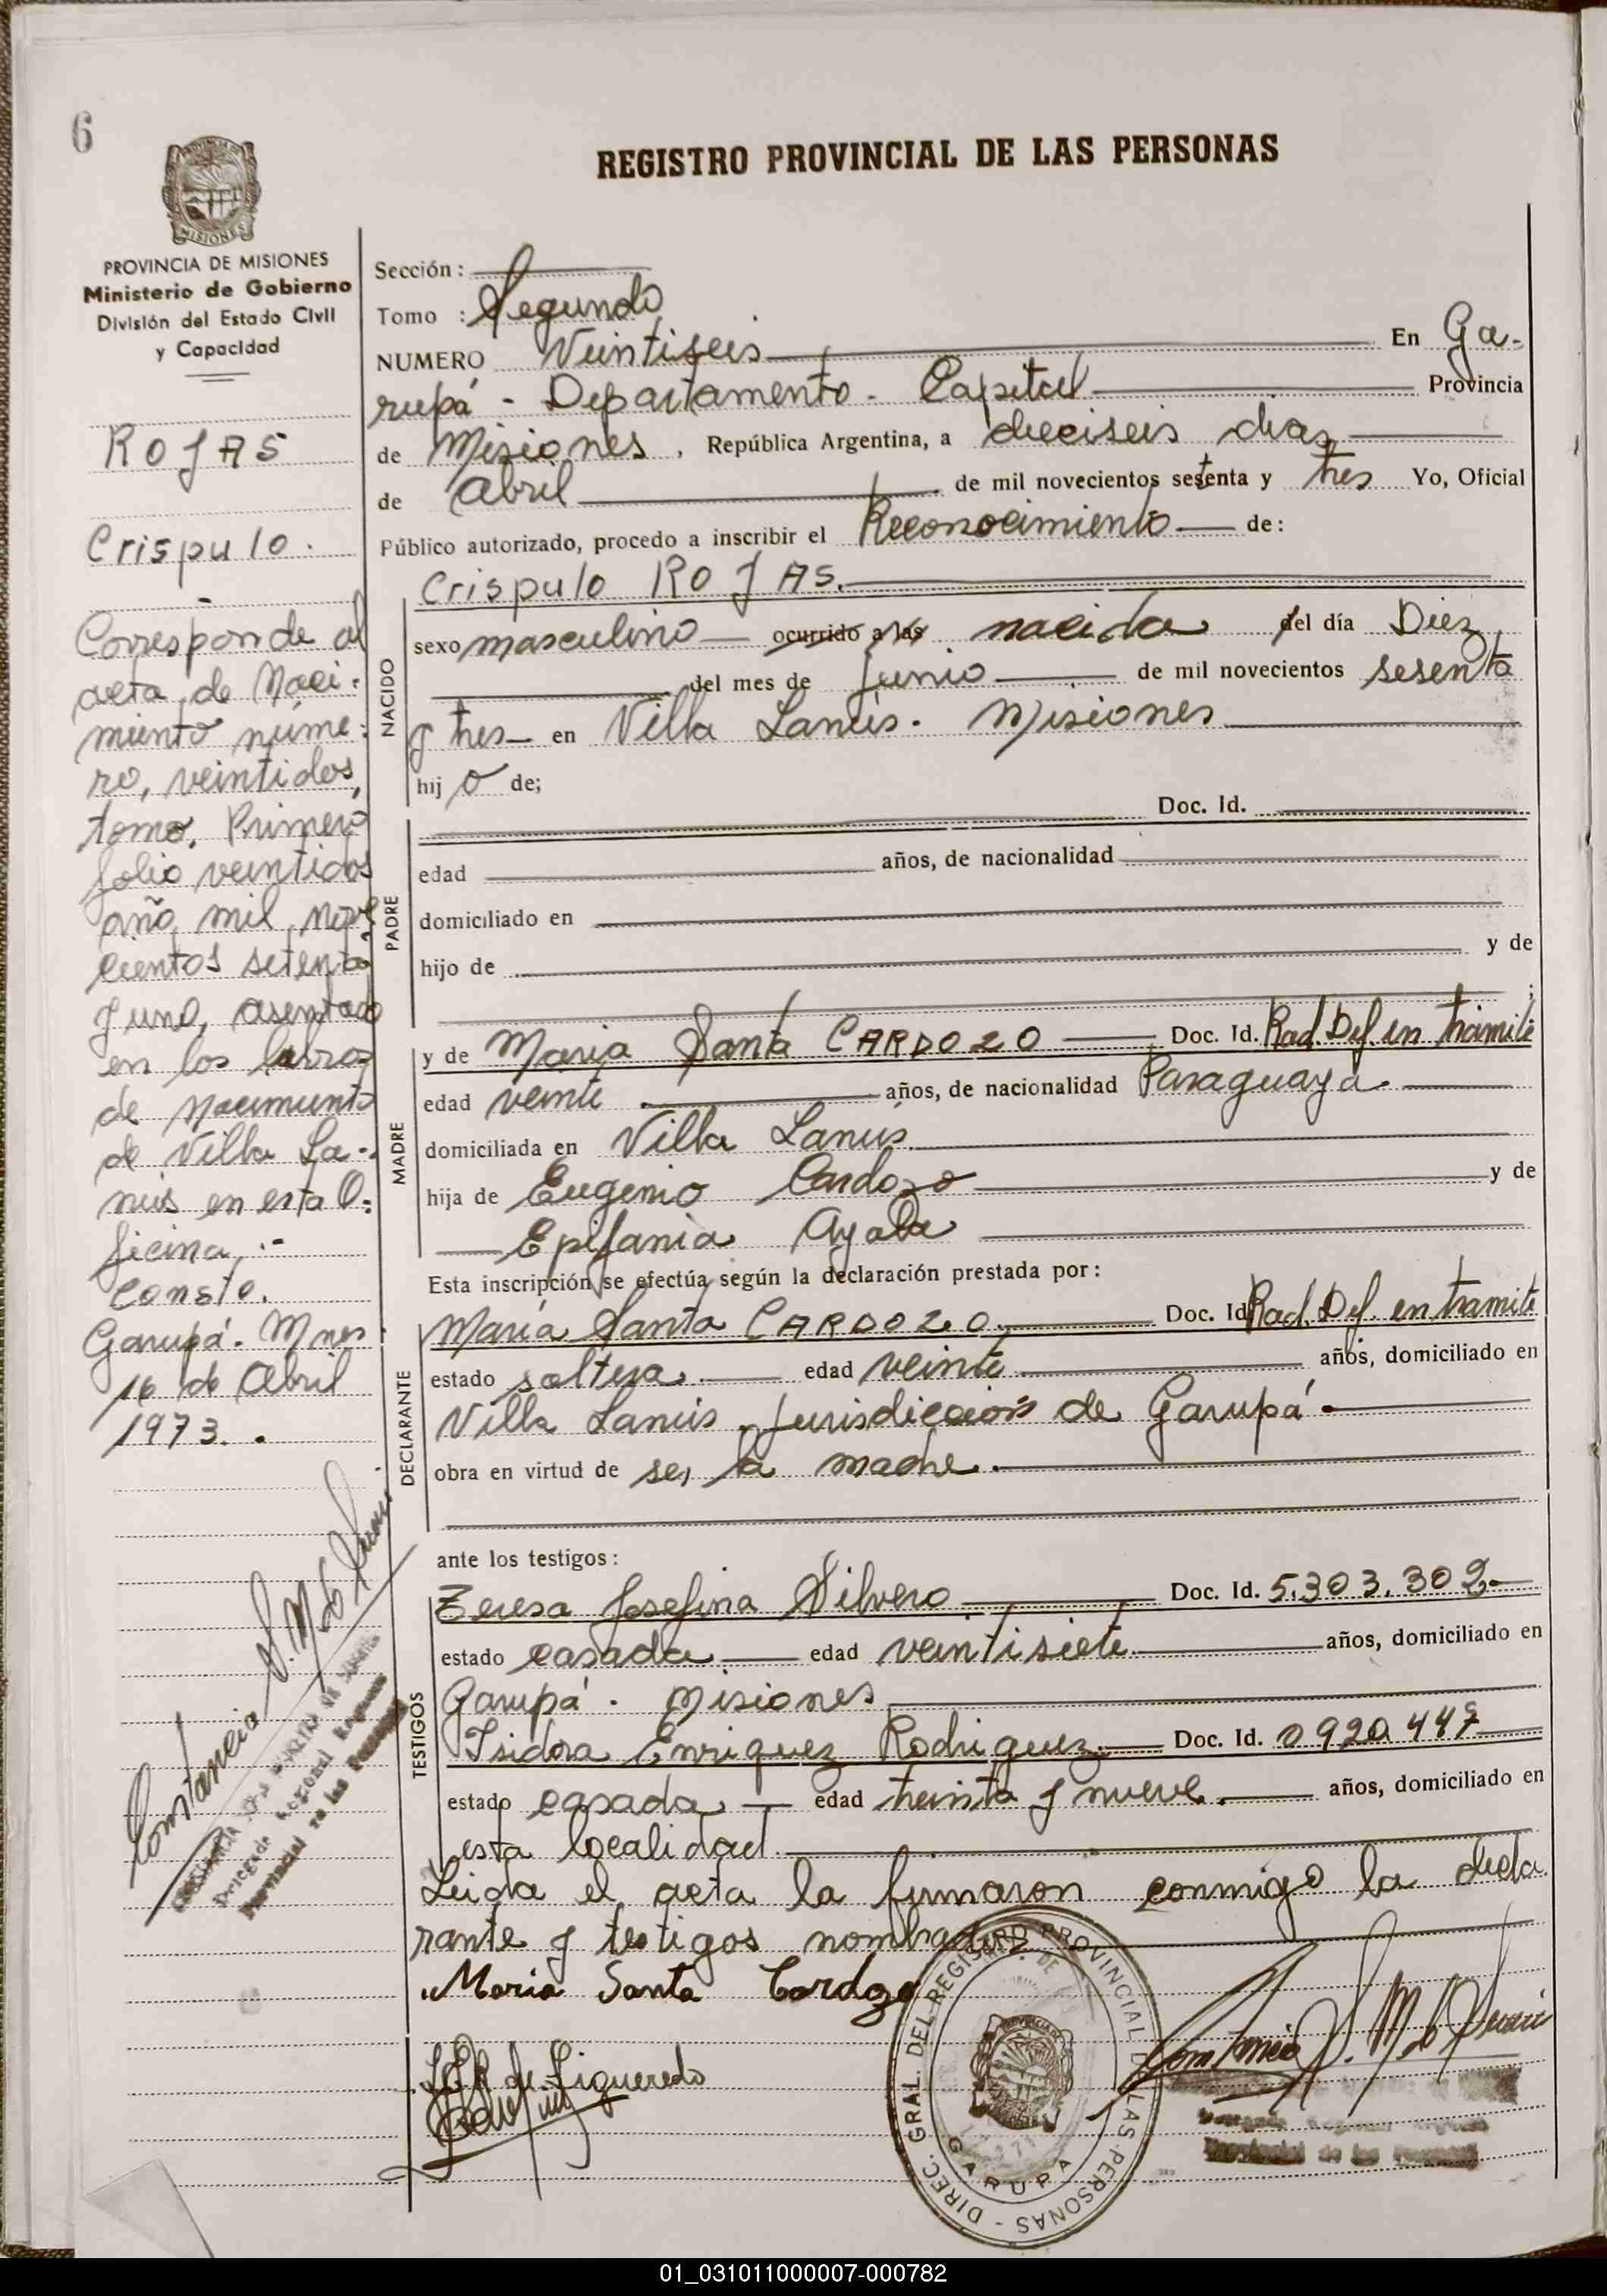 6
REGISTRO PROVINCIAL DE LAS PERSONAS
MISIONES
PROVINCIA DE MISIONES
Ministerio de Gobierno
División del Estado Civil
y Capacidad
ROJAS
Crispulo.
Corresponde al
acta de Naci-
miento núme-
ro, veintidos,
tomo, Primero
folio veintidos
año, mil nove
cientos setenta
y uno, asentado
en los libros
de nacimiento
de Villa La-
nús en esta O-
ficina.-
Conste.
Garupá. Mnes
16 de Abril
1973.
Sección:
Tomo : Segundo
NUMERO Veintiseis En Ga-
rupá - Departamento - Capital Provincia
de Misiones, República Argentina, a dieciseis dias
de Abril de mil novecientos setenta y tres Yo, Oficial
Público autorizado, procedo a inscribir el Reconocimiento de:
Crispulo ROJAS.
NACIDO
sexo masculino ocurrido a las nacida del día Diez
del mes de Junio de mil novecientos sesenta
y tres en Villa Lanús. Misiones
hij o de;
PADRE
Doc. Id.
edad años, de nacionalidad
domiciliado en
hijo de y de
;
MADRE
y de Maria Santa CARDOZO Doc. Id. Rad. Def. en trámite
edad veinte años, de nacionalidad Paraguaya
domiciliada en Villa Lanús.
hija de Eugenio Cardozo y de
Epifania Ayala
Esta inscripción se efectúa según la declaración prestada por:
DECLARANTE
María Santa CARDOZO Doc. Id Rad. Def. en tramite
estado soltera. edad veinte años, domiciliado en
Villa Lanús. Jurisdiccion de Garupá
obra en virtud de ser la madre.
ante los testigos:
TESTIGOS
Teresa Josefina Silvero Doc. Id. 5.303.302
estado casada edad veintisiete años, domiciliado en
Garupá. Misiones
Isidora Enriquez Rodriguez Doc. Id. 0920.447
estado casada edad treinta y nueve años, domiciliado en
esta localidad.
Leida el acta la firmaron conmigo la decla
rante y testigos nombrados
Maria Santa Cardozo
de Figueredo
DIREC. GRAL. DEL REGISTRO PROVINCIAL DE LAS PERSONAS -
GARUPA
01_031011000007-000782